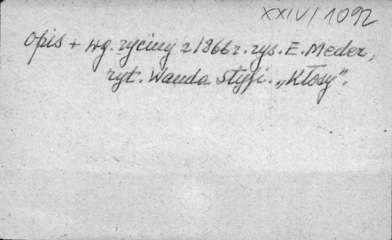 XXIV/1092
opis + wg. ryciny z 1866 r. rys. E. Meder,
ryt. Wanda Styfi. „Kłosy”.